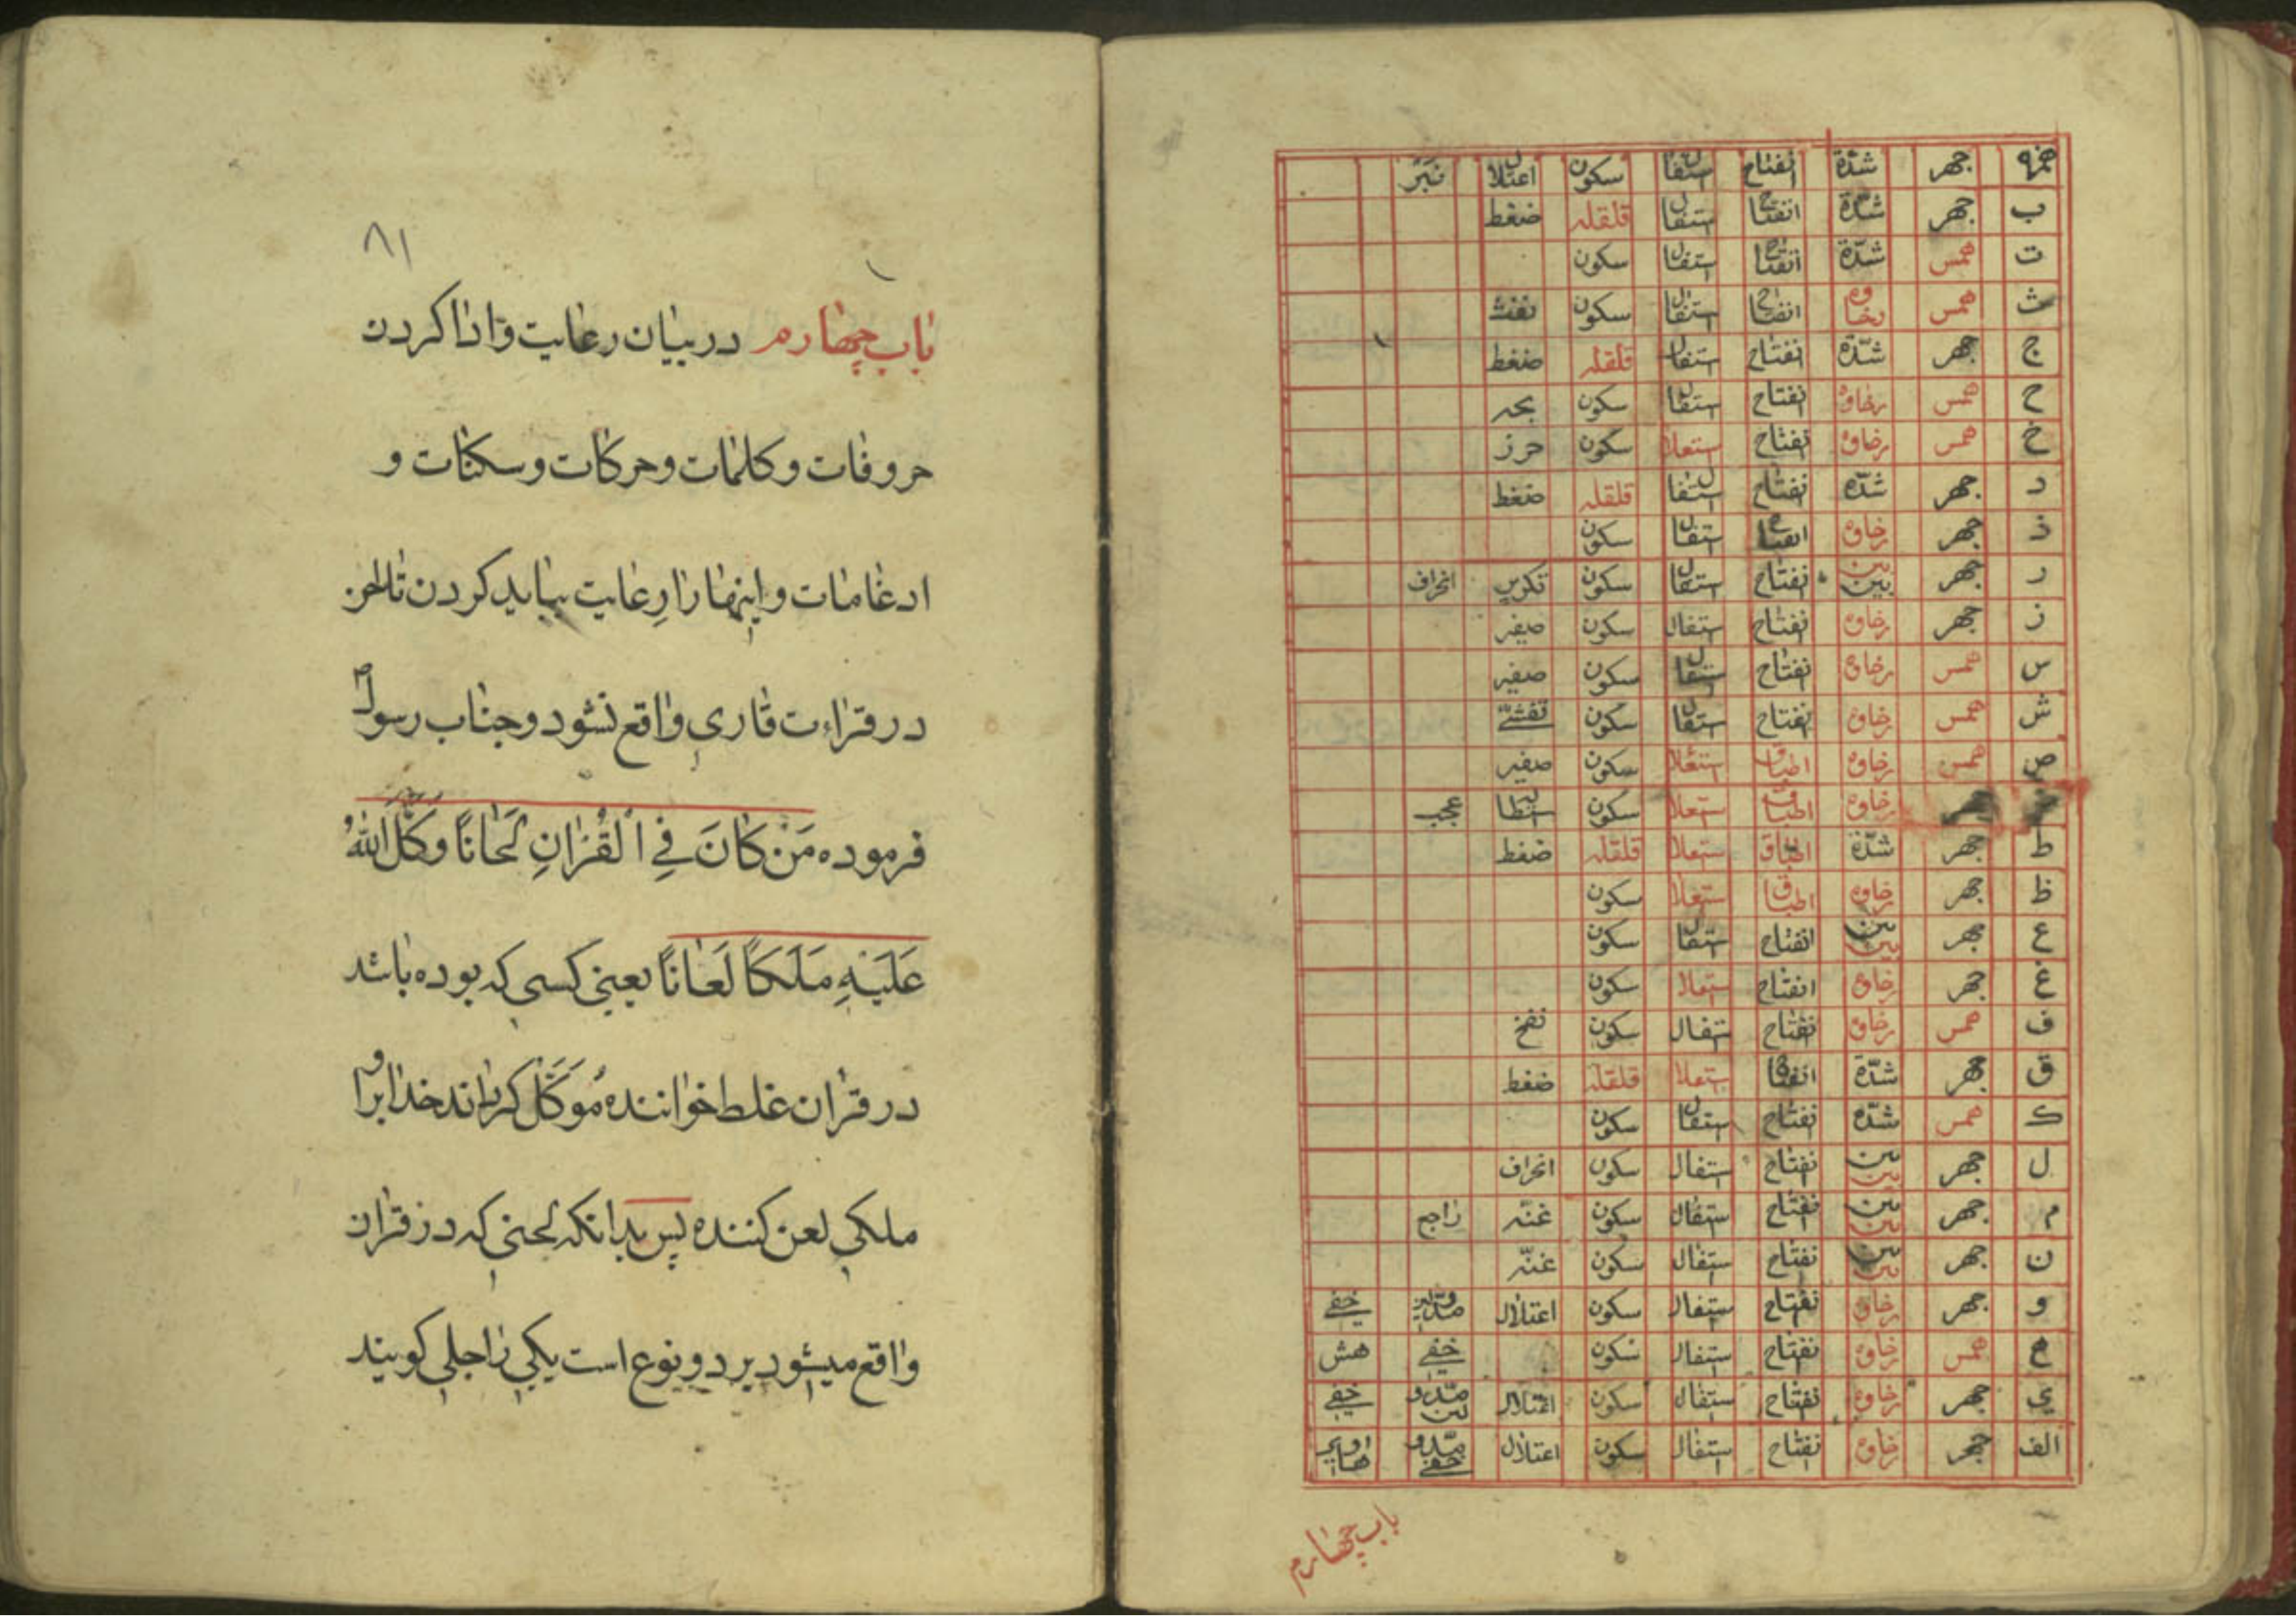 همزه جهر شدّة انفتاح استفال سكون اعتلال نبر
ب جهر شدّة انفتاح استفال قلقله ضغط
ت همس شدّة انفتاح استفال سكون
ث همس رخاوه انفتاح استفال سكون نفث
ج جهر شدّة انفتاح استفال قلقله ضغط
ح همس رخاوه انفتاح استفال سكون بحه
خ همس رخاوه انفتاح استعلا سكون خرز
د جهر شدّة انفتاح استفال قلقله ضغط
ذ جهر رخاوه انفتاح استفال سكون
ر جهر بين بين انفتاح استفال سكون تكرير انحراف
ز جهر رخاوه انفتاح استفال سكون صفير
س همس رخاوه انفتاح استفال سكون صفير
ش همس رخاوه انفتاح استفال سكون تفشّے
ص همس رخاوه اطباق استعلا سكون صفير
ض جهر رخاوه اطباق استعلا سكون عجب
ط جهر شدّة اطباق استعلا قلقله ضغط
ظ جهر رخاوه اطباق استعلا سكون
ع جهر بين بين انفتاح استفال سكون
غ جهر رخاوه انفتاح استعلا سكون
ف همس رخاوه انفتاح استفال سكون نفخ
ق جهر شدّة انفتاح استعلا قلقله ضغط
ك همس شدّة انفتاح استفال سكون
ل جهر بين بين انفتاح استفال سكون انحراف
م جهر بين بين انفتاح استفال سكون غنّه راجع
ن جهر بين بين انفتاح استفال سكون غنّه
و جهر رخاوه انفتاح استفال سكون اعتلال خفے
ه همس رخاوه انفتاح استفال سكون خفے هش
ي جهر رخاوه انفتاح استفال سكون اعتلال مدّ و لين خفے
الف جهر رخاوه انفتاح استفال سكون اعتلال مدّ و خفے
باب چهارم
۸۱
باب چهارم در بيان رعايت و ادا كردن
حروفات و كلمات و حركات و سكنات و
ادغامات و اينها را رعايت ببايد كردن تا لحن
در قراءت قارى واقع نشود و جناب رسول ص
فرموده مَنْ كانَ فِي الْقُرْانِ لَحّاناً وَكَّلَ اللهُ
عَلَيْهِ مَلَكاً لَعّاناً يعنى كسى كه بوده باشد
در قران غلط خواننده مُوَكَّل كرداند خدا براو
ملكى لعن كننده پس بدانكه لحنى كه در قران
واقع ميشود بر دو نوع است يكى را جلى كويند